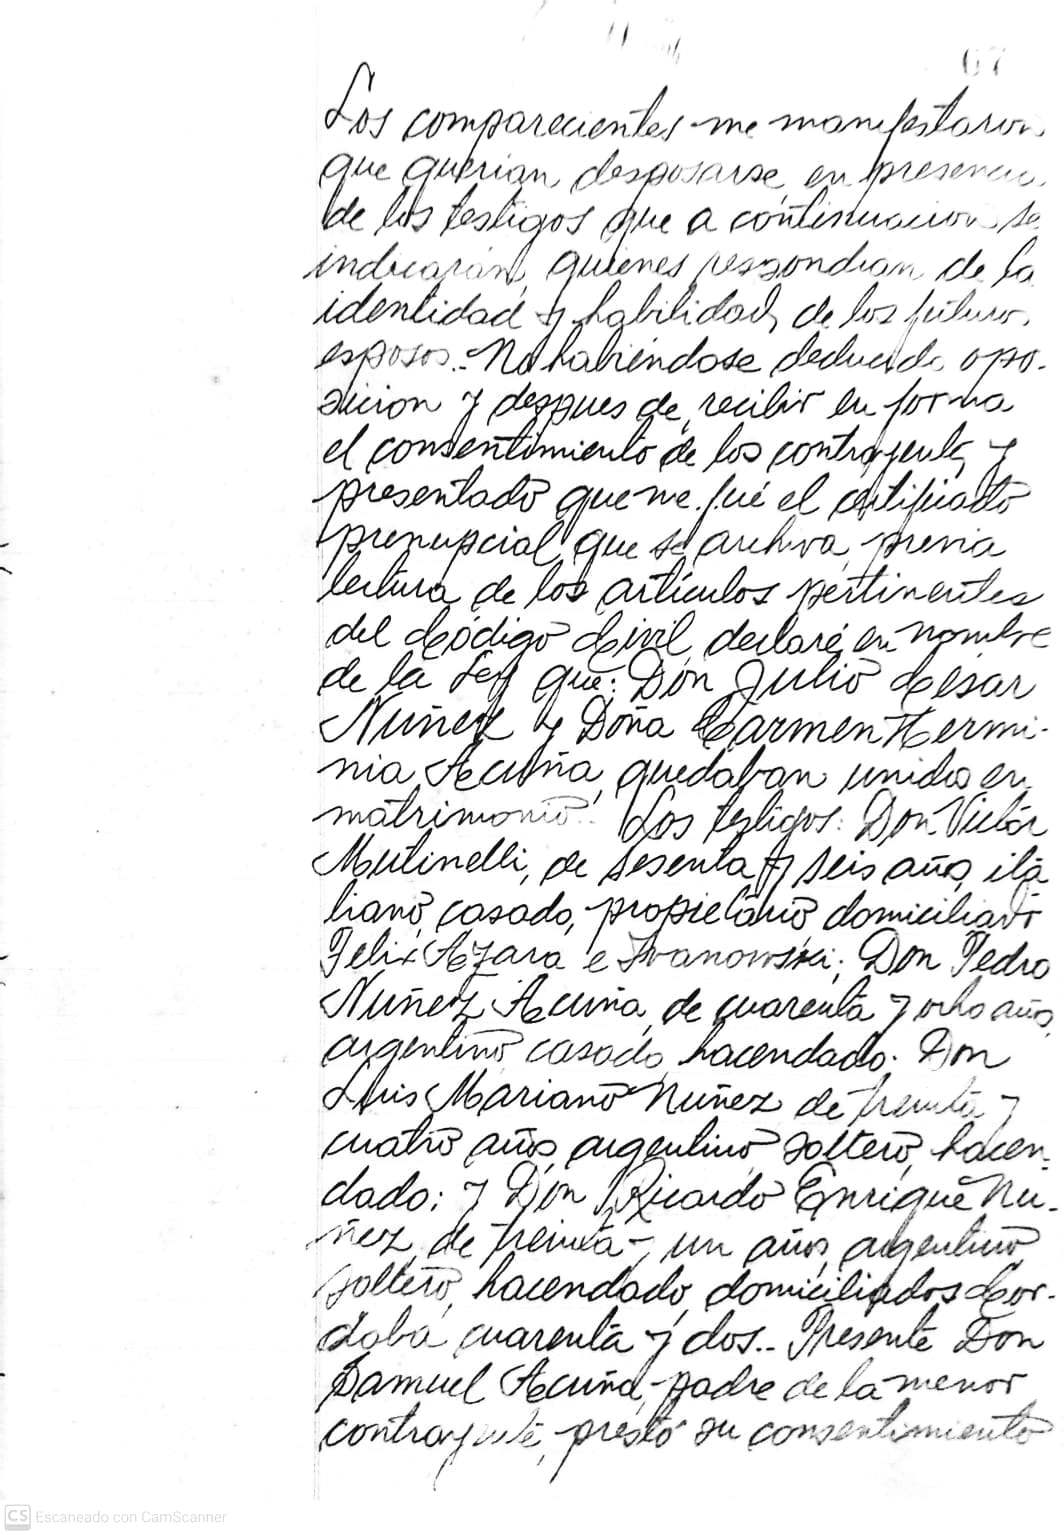 67
Los comparecientes me manifestaron
que querian desposarse en presencia
de los testigos que a continuacion se
indicarán, quienes respondian de la
identidad y habilidad de los futuros
esposos.- No habiéndose deducido opo-
sicion y despues de recibir en forma
el consentimiento de los contrayentes y
presentado que me fué el certificado
prenupcial que se archiva, previa
lectura de los artículos pertinentes
del Código Civil, declaré en nombre
de la Ley que: Don Julio César
Nuñez y Doña Carmen Hermi-
nia Acuña, quedaban unidos en
matrimonio.- Los testigos: Don Victor
Mutinelli, de sesenta y seis años, ita
liano, casado, propietario domiciliado
Felix Azara e Iwanowski; Don Pedro
Nuñez Acuña, de cuarenta y ocho años,
argentino, casado, hacendado; Don
Luis Mariano Nuñez de treinta y
cuatro años, argentino soltero, hacen-
dado; y Don Ricardo Enrique Nu-
ñez, de treinta y un años, argentino
soltero, hacendado, domiciliados Cor-
doba cuarenta y dos.- Presente Don
Samuel Acuña, padre de la menor
contrayente, prestó su consentimiento
CS Escaneado con CamScanner